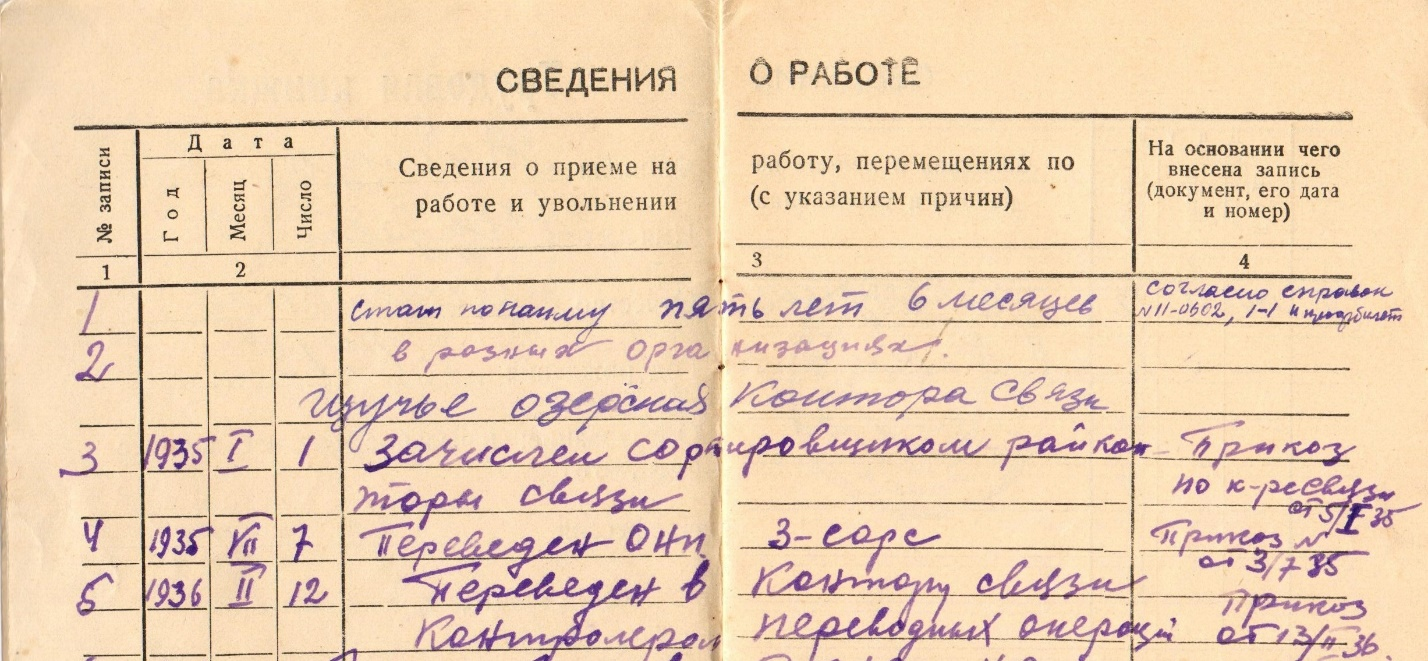 СВЕДЕНИЯ О РАБОТЕ
№ записи
Дата
Год
Месяц
Число
Сведения о приеме на работу, перемещениях по
работе и увольнении (с указанием причин)
На основании чего
внесена запись
(документ, его дата
и номер)
1 2 3 4
1 стаж по найму пять лет 6 месяцев согласно справок
№11-0602, 1-1 и
2 в разных организациях.
Щучье озерская Контора Связи
3 1935 I 1 Зачислен сортировщиком райкон- Приказ
торы связи по к-ре связи
от 5/I 35
4 1935 VII 7 Переведен 3- Приказ №
от 3/7 35
5 1936 II 12 Переведен в Контору связи Приказ
Контролером переводных операций от 13/II 36.